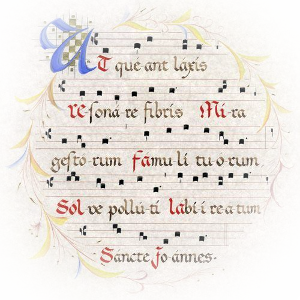 UT que ant laxis
resona·re fibris Mi·ra
gesto·rum famu li tu o·rum
Sol ve pollu·ti labi·i re a tum
·Sancte Jo·annes·